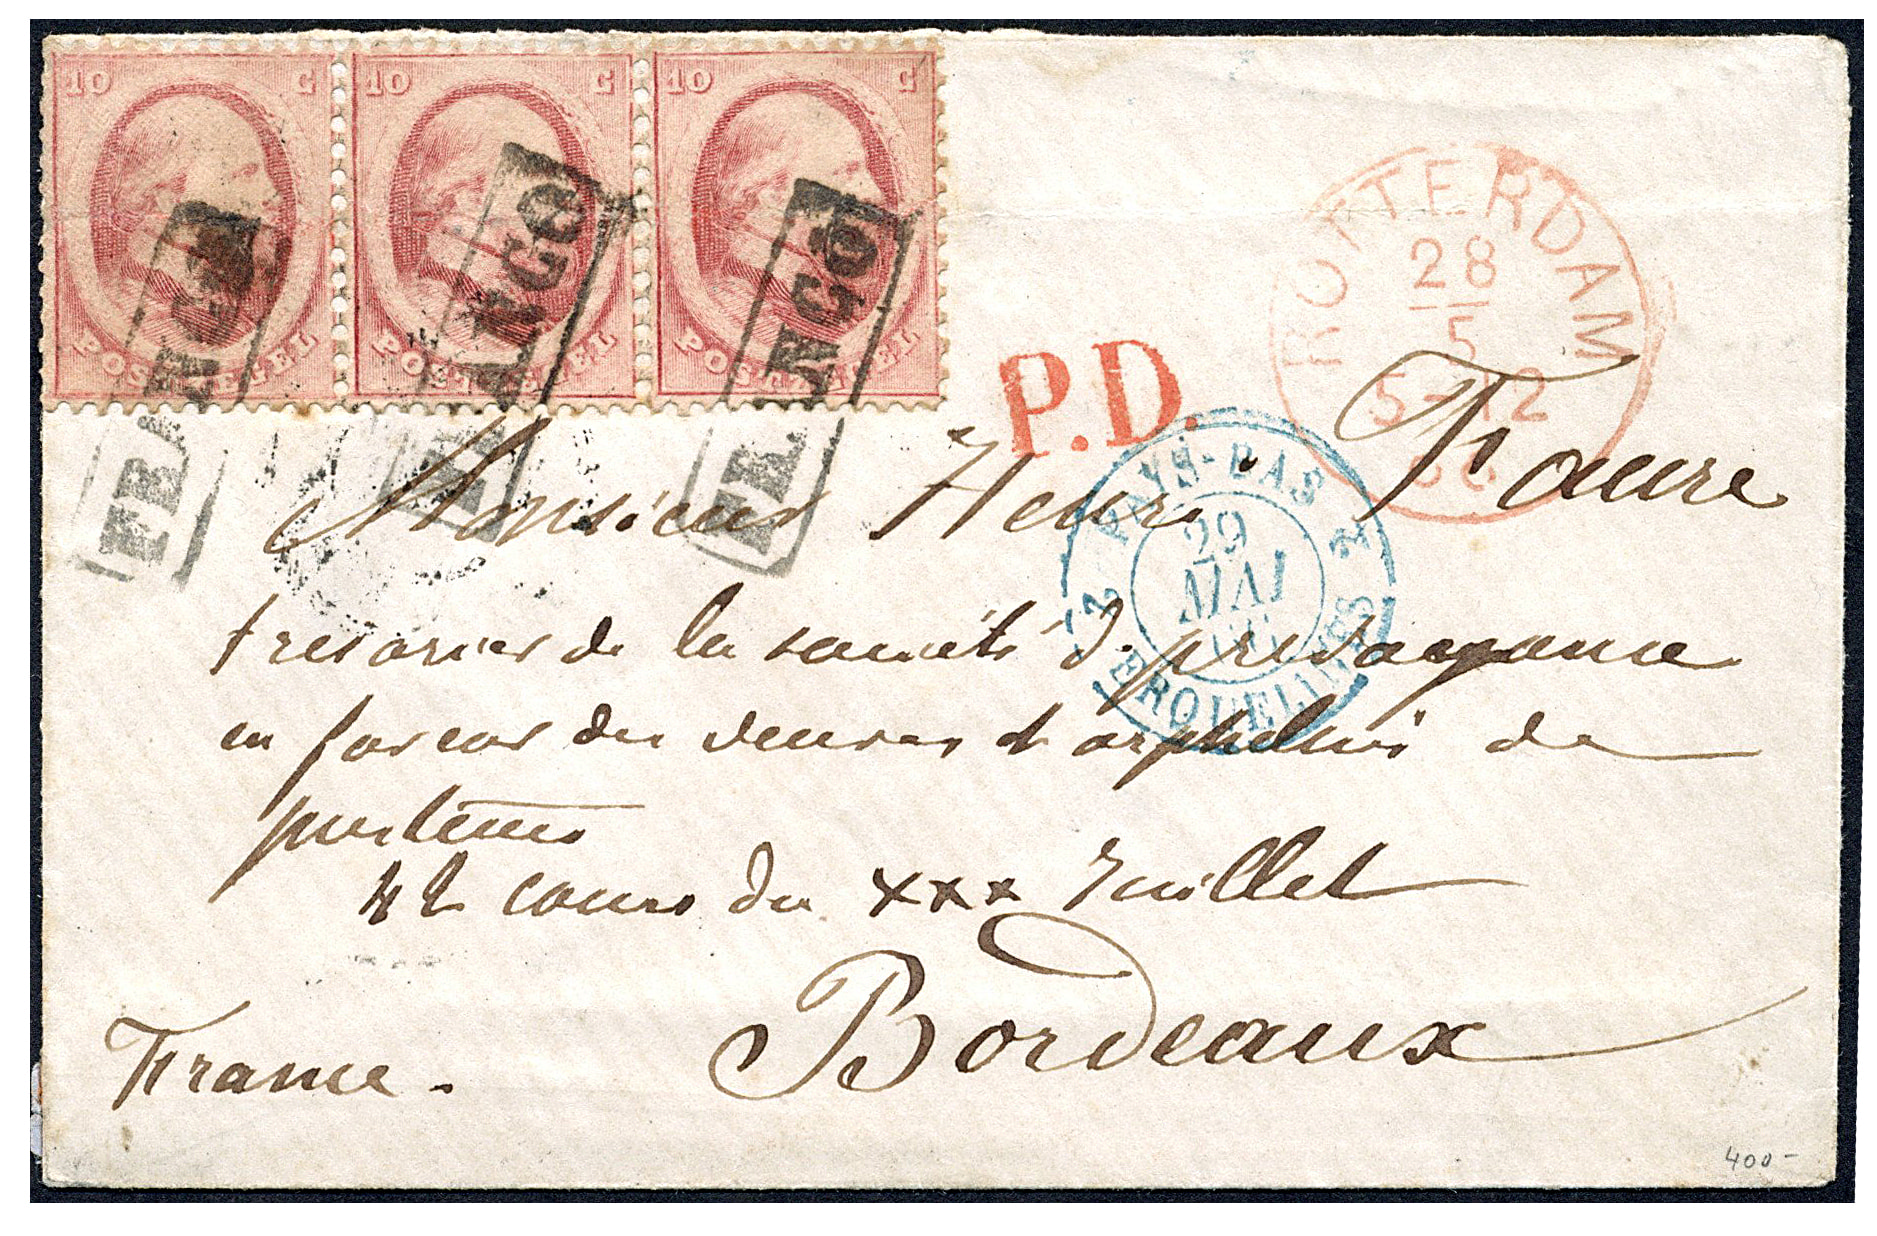 10 C 10 C 10 C
POSTZEGEL POSTZEGEL POSTZEGEL
FRANCO FRANCO FRANCO
ROTTERDAM
28
5
5-12
66
P.D.
2 PAYS-BAS 2
29
MAI
66
ERQUELINES
Monsieur Henri Faure
tresorier de la société de prevoyance
en faveur des veuves et orphelins de
pasteurs
42 cours du xxx Juillet
Bordeaux
France.
400-